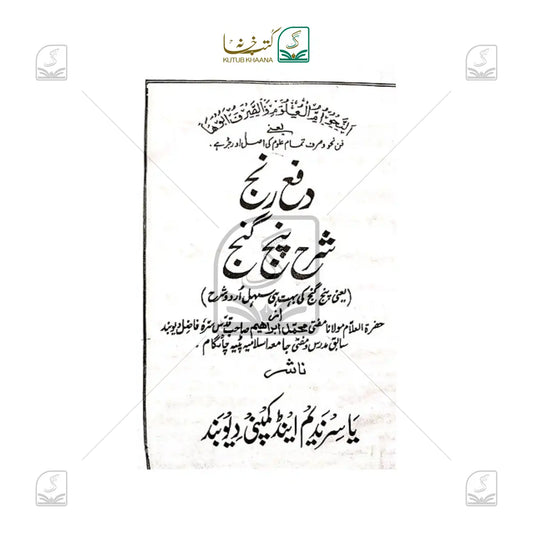 کتب خانہ
KUTUB KHAANA
اَلنَّحْوُ اُمُّ الْعُلُوْمِ وَالصَّرْفُ اَبُوْهَا
یعنی
فن نحو و صرف تمام علوم کی اصل اور جڑ ہے۔
دفع رنج
شرح پنج گنج
(یعنی پنج گنج کی بہت ہی سہل اُردو شرح)
از
حضرۃ العلام مولانا مفتی محمد ابراھیم صاحب قدس سرہٗ فاضل دیوبند
سابق مدرس و مفتی جامعہ اسلامیہ پٹیہ چاٹگام۔
ناشر
یاسر ندیم اینڈ کمپنی دیوبند